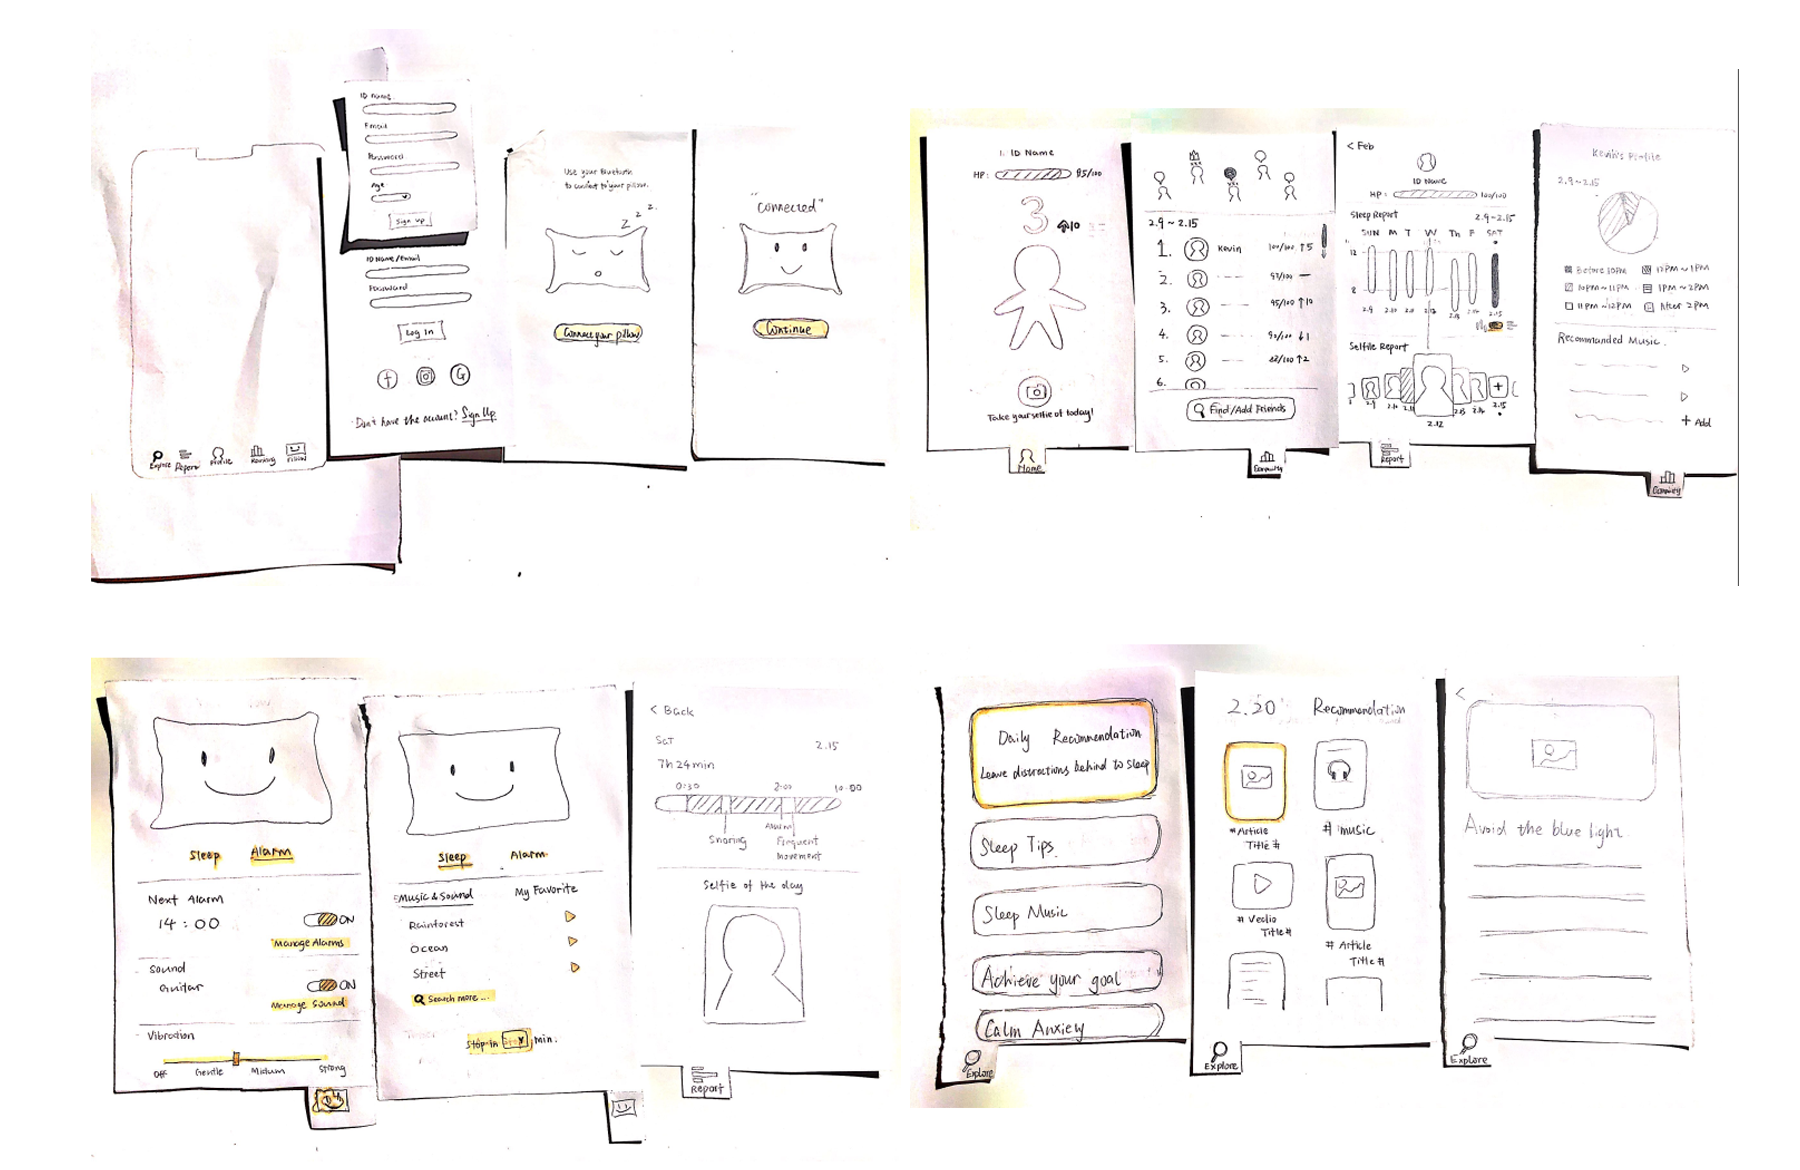 Explore
Report
Profile
Ranking
Pillow
ID name
Email
Password
Age
Sign up
ID Name/Email
Password
Log In
f
G
Don't have the account? Sign Up
Use your Bluetooth
to connect to your pillow.
z z z.
Connect your pillow
"Connected"
Continue
1. ID Name
HP: 85/100
3 10
Take your selfie of today!
Home
2.9 ~ 2.15
1. Kevin 100/100 ↑5
2. 97/100 –
3. 95/100 ↑10
4. 90/100 ↓1
5. 88/100 ↑2
6.
Find/Add Friends
< Feb
ID Name
HP: 100/100
Sleep Report 2.9~2.15
SUN M T W Th F SAT
12
8
2.9 2.10 2.11 2.12 2.13 2.14 2.15
Selfile Report
2.9 2.10 2.11 2.13 2.14 2.15
2.12
Report
Kevin's Profile
2.9~2.15
Before 10PM 12PM~1PM
10PM~11PM 1PM~2PM
11PM~12PM After 2PM
Recommanded Music.
+ Add
Sleep Alarm
Next Alarm
14:00 ON
Manage Alarms
Sound
Guitar ON
Manage Sound
Vibration
Off Gentle Midium Strong
Sleep Alarm
Music & Sound My Favorite
Rainforest
Ocean
Street
Search more ...
Stop in min.
< Back
SAT 2.15
7h 24min
0:30 2:00 10:00
Snoring Alarm Frequent
movement
Selfie of the day
Report
Daily Recommendation
Leave distractions behind to sleep
Sleep Tips
Sleep Music
Achieve your goal
Calm Anxiety
Explore
2.20 Recommendation
#Article
Title#
# music
# Vedio
Title#
# Article
Title#
Explore
<
Avoid the blue light
Explore